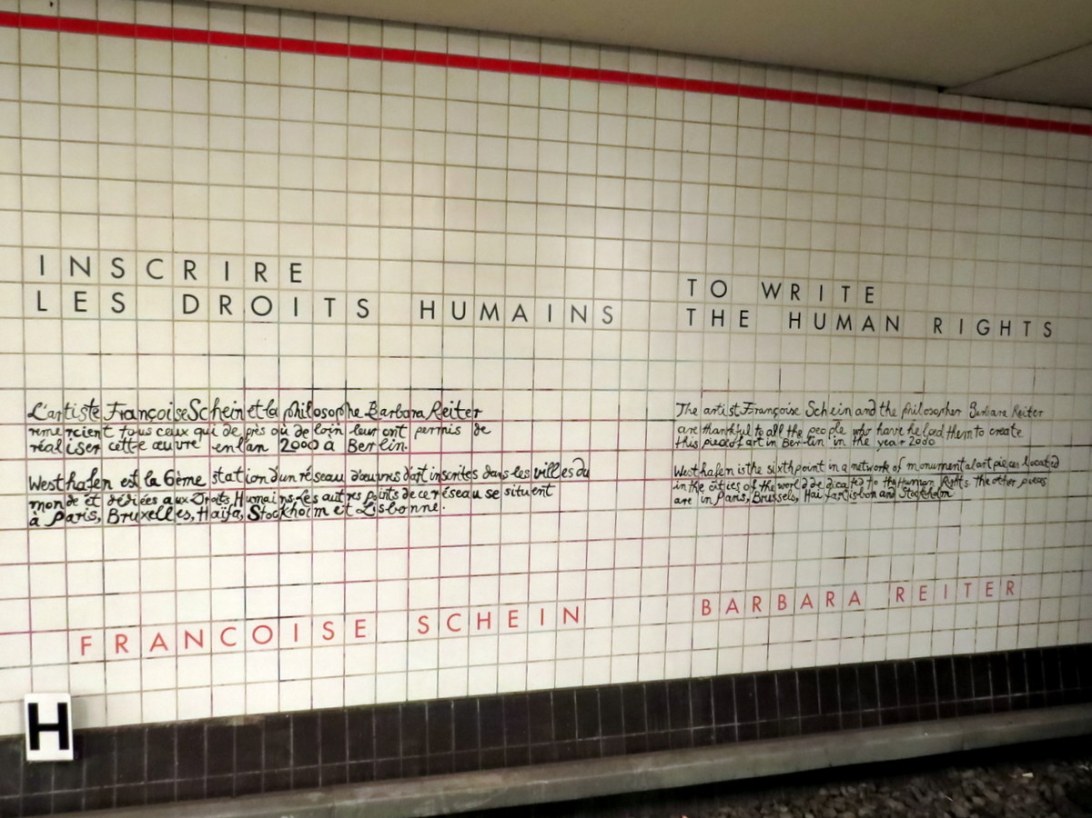 INSCRIRE
LES DROITS HUMAINS
L'artiste Françoise Schein et la philosophe Barbara Reiter
remercient tous ceux qui de près où de loin leur ont permis de
réaliser cette œuvre en l'an 2000 à Berlin.
Westhafen est la 6ème station d'un réseau d'œuvres d'art inscrites dans les villes du
monde et dédiées aux Droits Humains. Les autres points de ce réseau se situent
à Paris, Bruxelles, Haïfa, Stockholm et Lisbonne.
FRANCOISE SCHEIN
TO WRITE
THE HUMAN RIGHTS
The artist Françoise Schein and the philosopher Barbara Reiter
are thankful to all the people who have helped them to create
this piece of art in Berlin in the year 2000
Westhafen is the sixth point in a network of monumental art pieces located
in the cities of the world dedicated to the Human Rights. The other pieces
are in Paris, Brussels, Haifa, Lisbon and Stockholm
BARBARA REITER
H